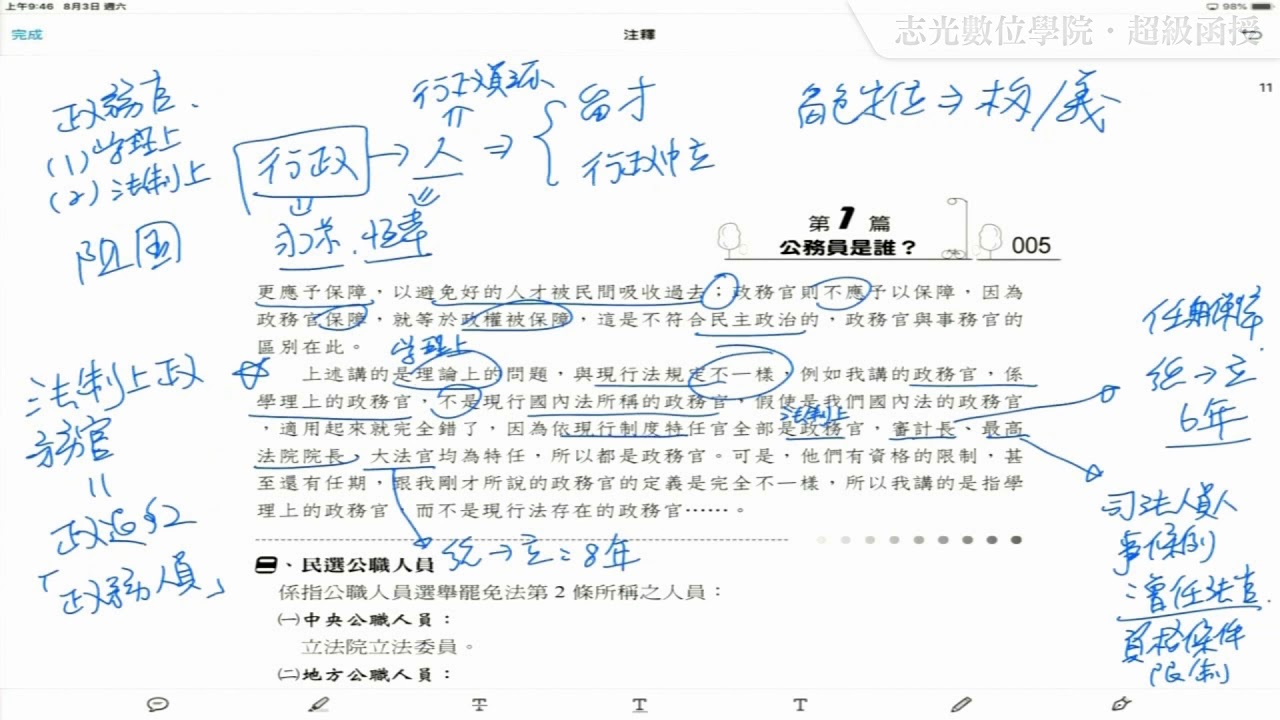 上午9:46 8月3日 週六
98%
完成
注釋
志光數位學院・超級函授
11
政務官.
(1)學理上
(2)法制上
行政 → 人 ⇒
行政資源
留才
行政中立
角色定位 ⇒
第1篇
公務員是誰？
005
更應予保障，以避免好的人才被民間吸收過去；政務官則不應予以保障，因為
政務官保障，就等於政權被保障，這是不符合民主政治的，政務官與事務官的
區別在此。
學理上
上述講的是理論上的問題，與現行法規定不一樣，例如我講的政務官，係
學理上的政務官，不是現行國內法所稱的政務官，假使是我們國內法的政務官
法制上
，適用起來就完全錯了，因為依現行制度特任官全部是政務官，審計長、最高
法院院長，大法官均為特任，所以都是政務官。可是，他們有資格的限制，甚
至還有任期，跟我剛才所說的政務官的定義是完全不一樣，所以我講的是指學
理上的政務官，而不是現行法存在的政務官……。
法制上政
務官
政退§2
「政務人員」
任期保障
總→立
6年
司法人員人
事條例
：曾任法官.
資格條件
限制
總→立：8年
、民選公職人員
係指公職人員選舉罷免法第2條所稱之人員：
㈠中央公職人員：
立法院立法委員。
㈡地方公職人員：